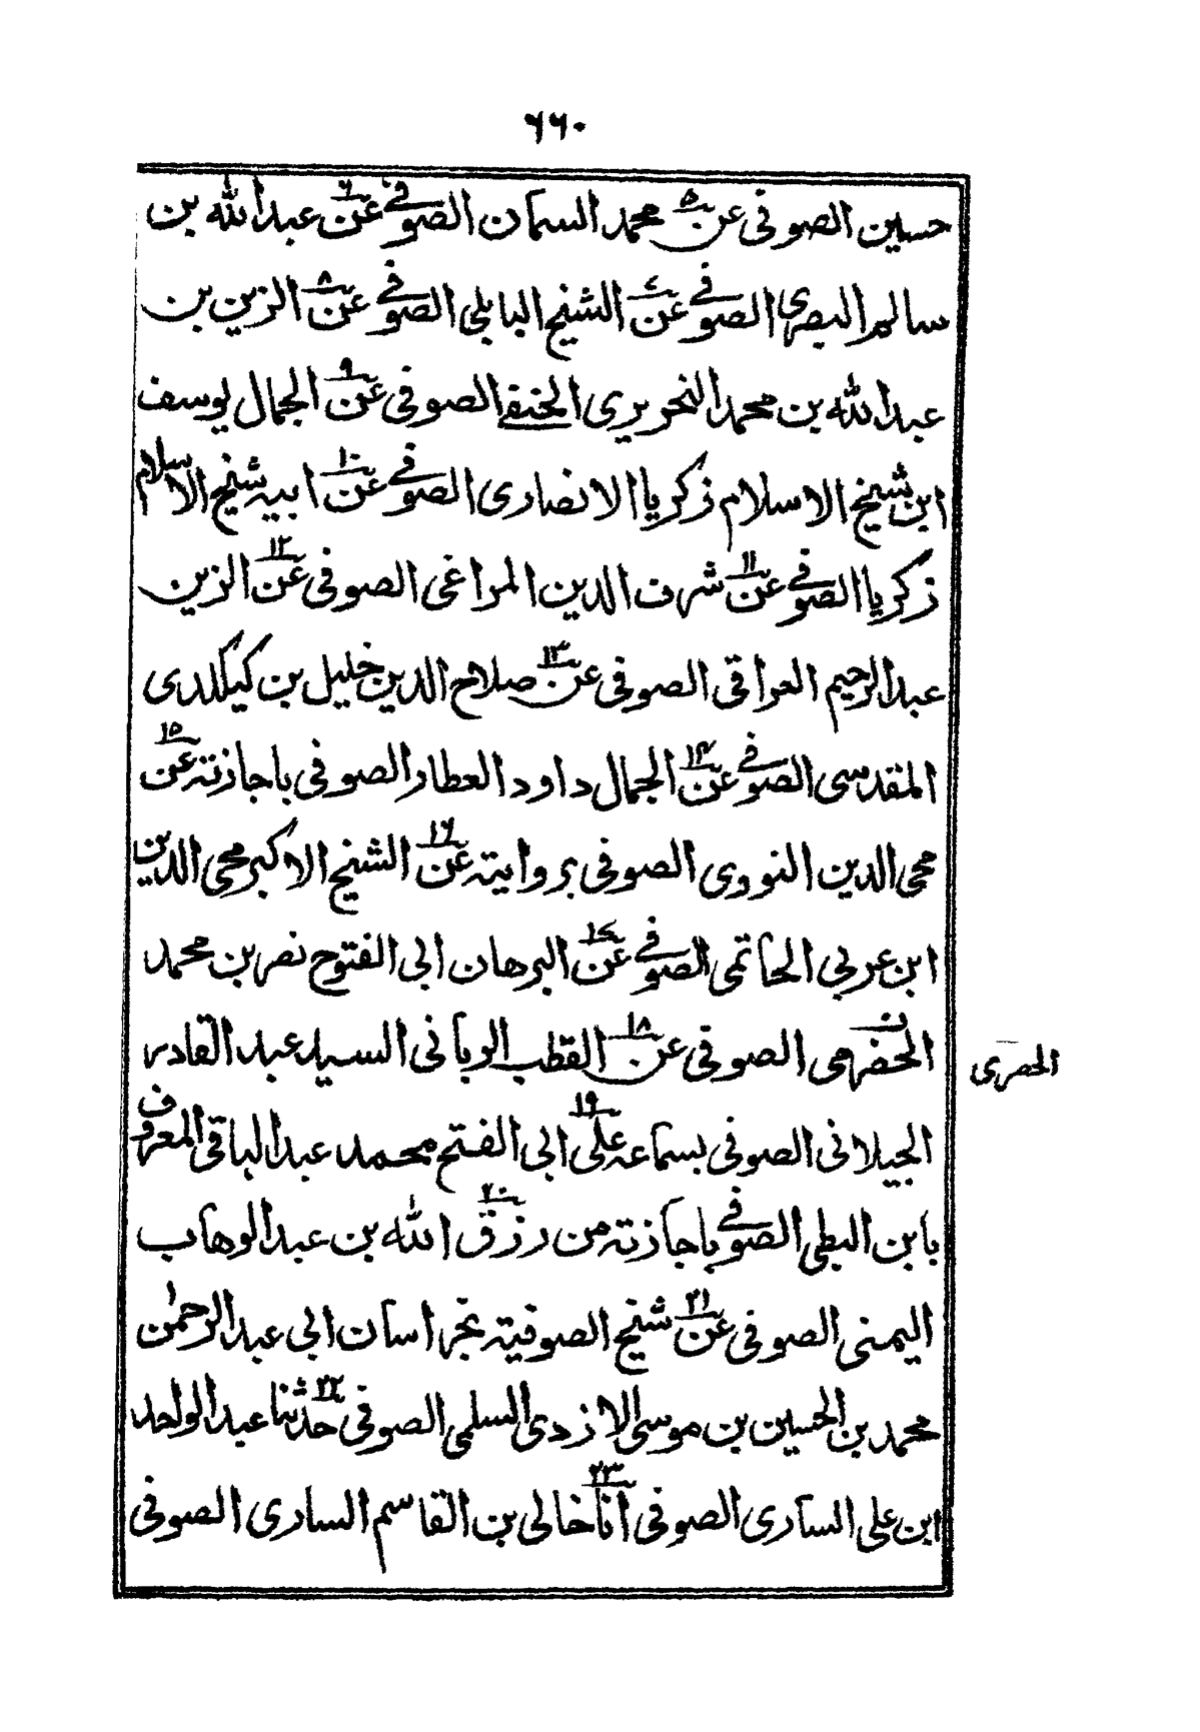 ٦٦٠
حسین الصوفی عن ۵ محمد السمان الصوفی عن ٦ عبدالله بن
سالم البصری الصوفی عن ۷ الشیخ البابلی الصوفی عن ۸ الزین بن
عبدالله بن محمد النحریری الحنفی الصوفی عن ۹ الجمال یوسف
ابن شیخ الاسلام زکریا الانصاری الصوفی عن ۱۰ ابیه شیخ الاسلام
زکریا الصوفی عن ۱۱ شرف الدین المراغی الصوفی عن ۱۲ الزین
عبدالرحیم العراقی الصوفی عن ۱۳ صلاح الدین خلیل بن کیکلدی
المقدسی الصوفی عن ۱۴ الجمال داود العطار الصوفی باجازته عن ۱۵
محی الدین النووی الصوفی بروایته عن ۱٦ الشیخ الاکبر محی الدین
ابن عربی الحاتمی الصوفی عن ۱۷ البرهان ابی الفتوح نصر بن محمد
الحضرمی الصوفی عن ۱۸ القطب الربانی السید عبد القادر
الحصری
الجیلانی الصوفی بسماعه علی ۱۹ ابی الفتح محمد عبدالباقی المعروف
بابن البطی الصوفی باجازته من ۲۰ رزق الله بن عبدالوهاب
الیمنی الصوفی عن ۲۱ شیخ الصوفیة بخراسان ابی عبدالرحمٰن
محمد بن الحسین بن موسی الازدی السلمی الصوفی ۲۲ حدثنا عبدالواحد
ابن علی الساری الصوفی ۲۳ انا خالی بن القاسم الساری الصوفی